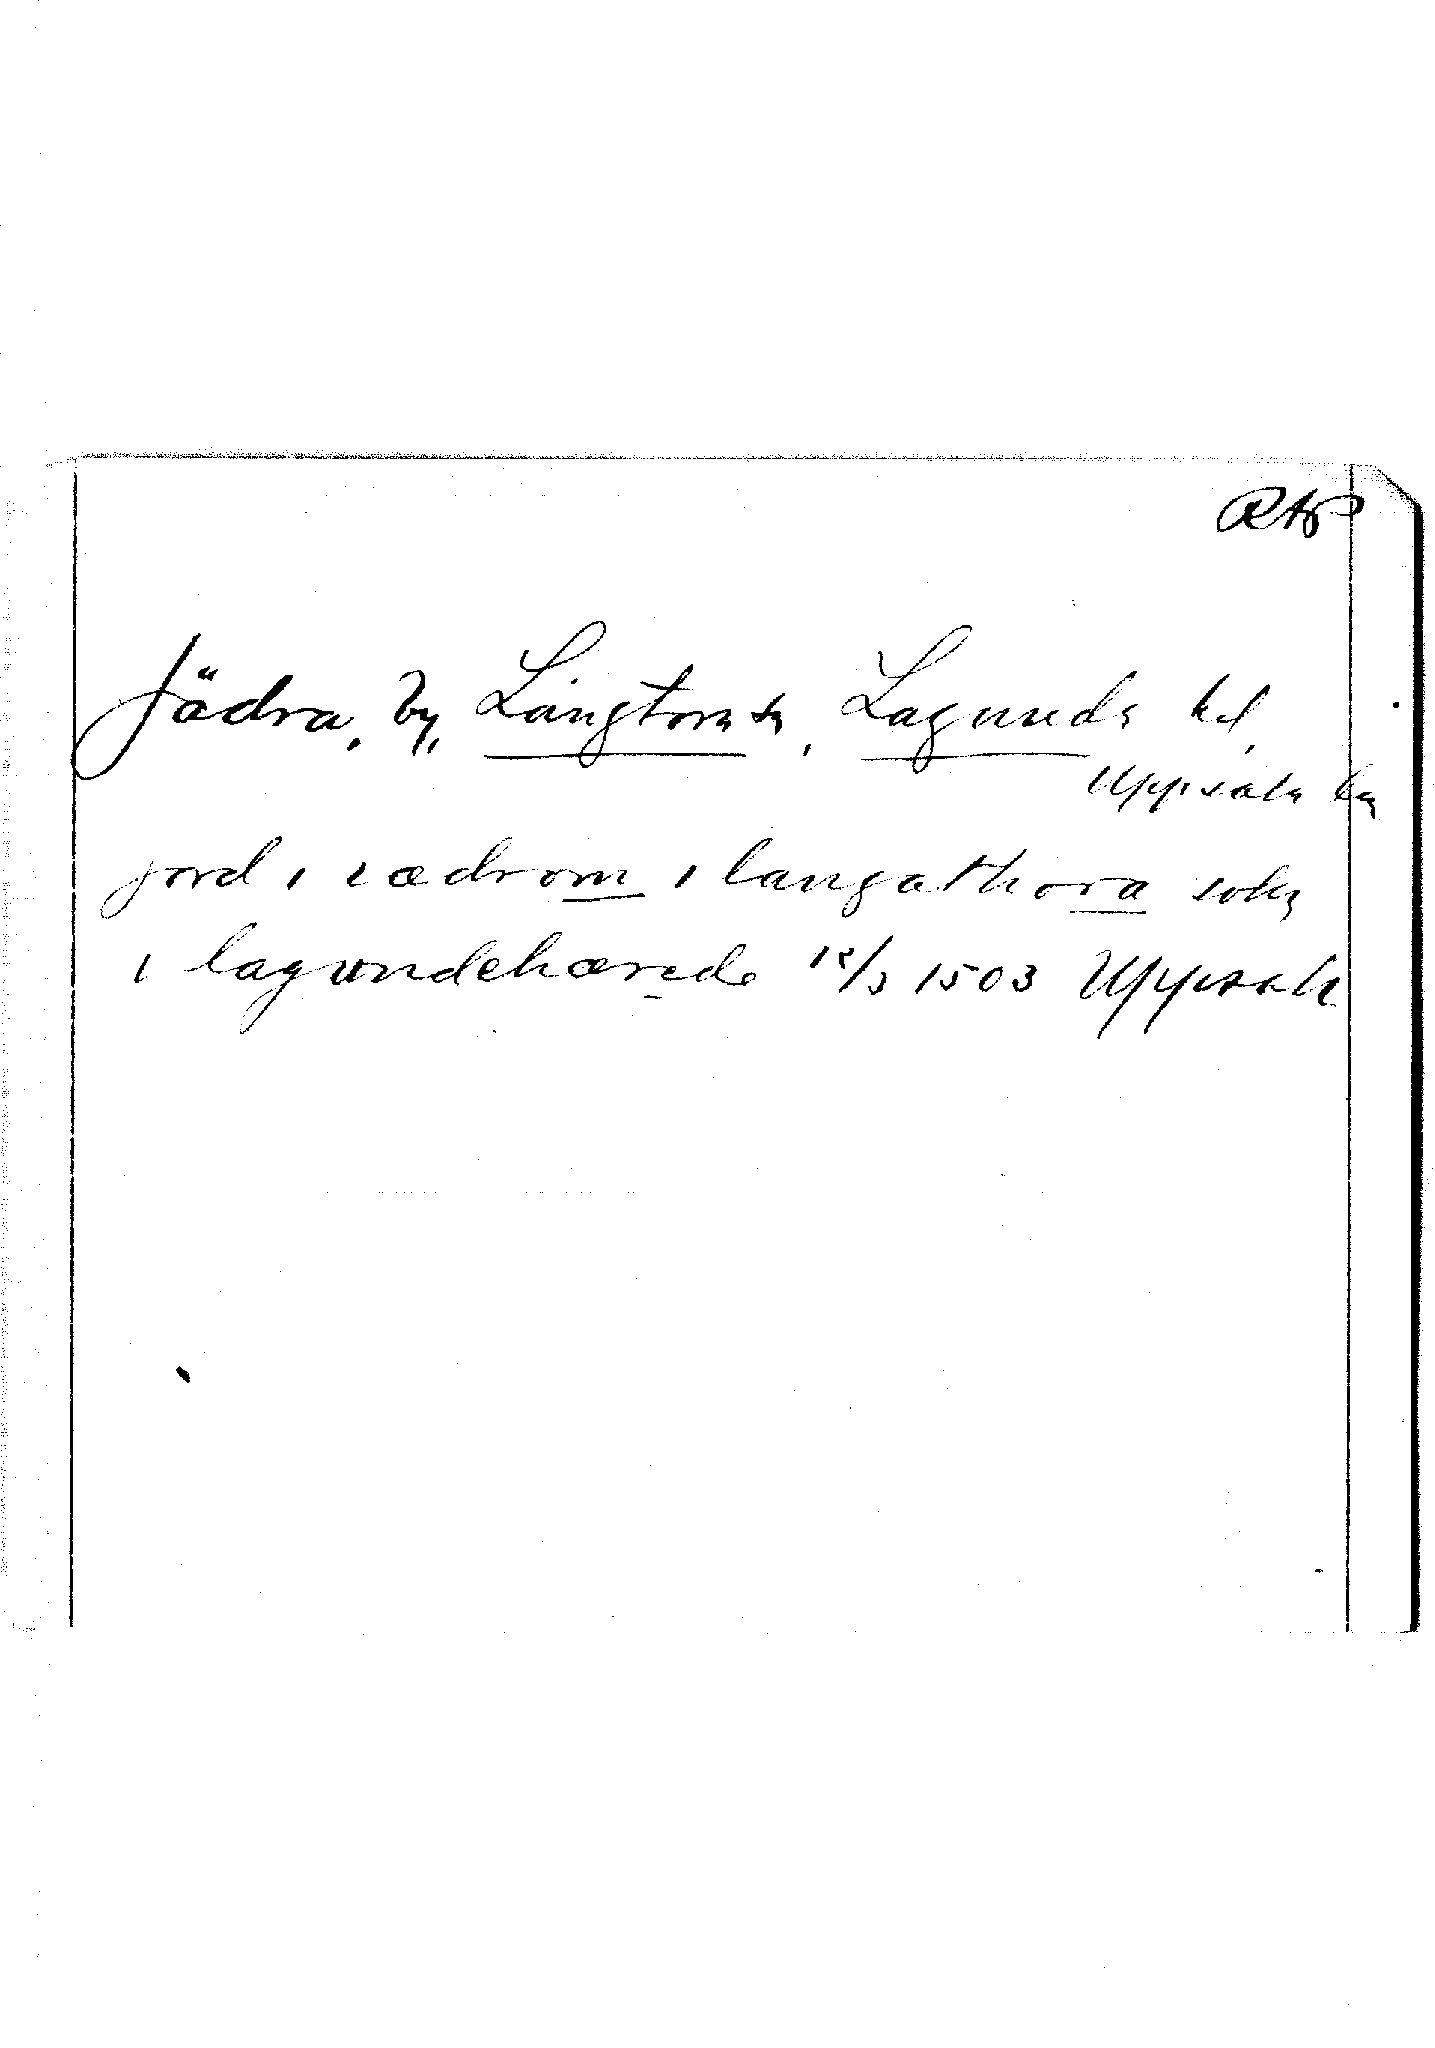 RAP
Jädra, by, Långtora sn, Lagunda hd,
Uppsala län
jord i iædrom i langathora sokn
i lagundehærede 12/3 1503 Uppsala